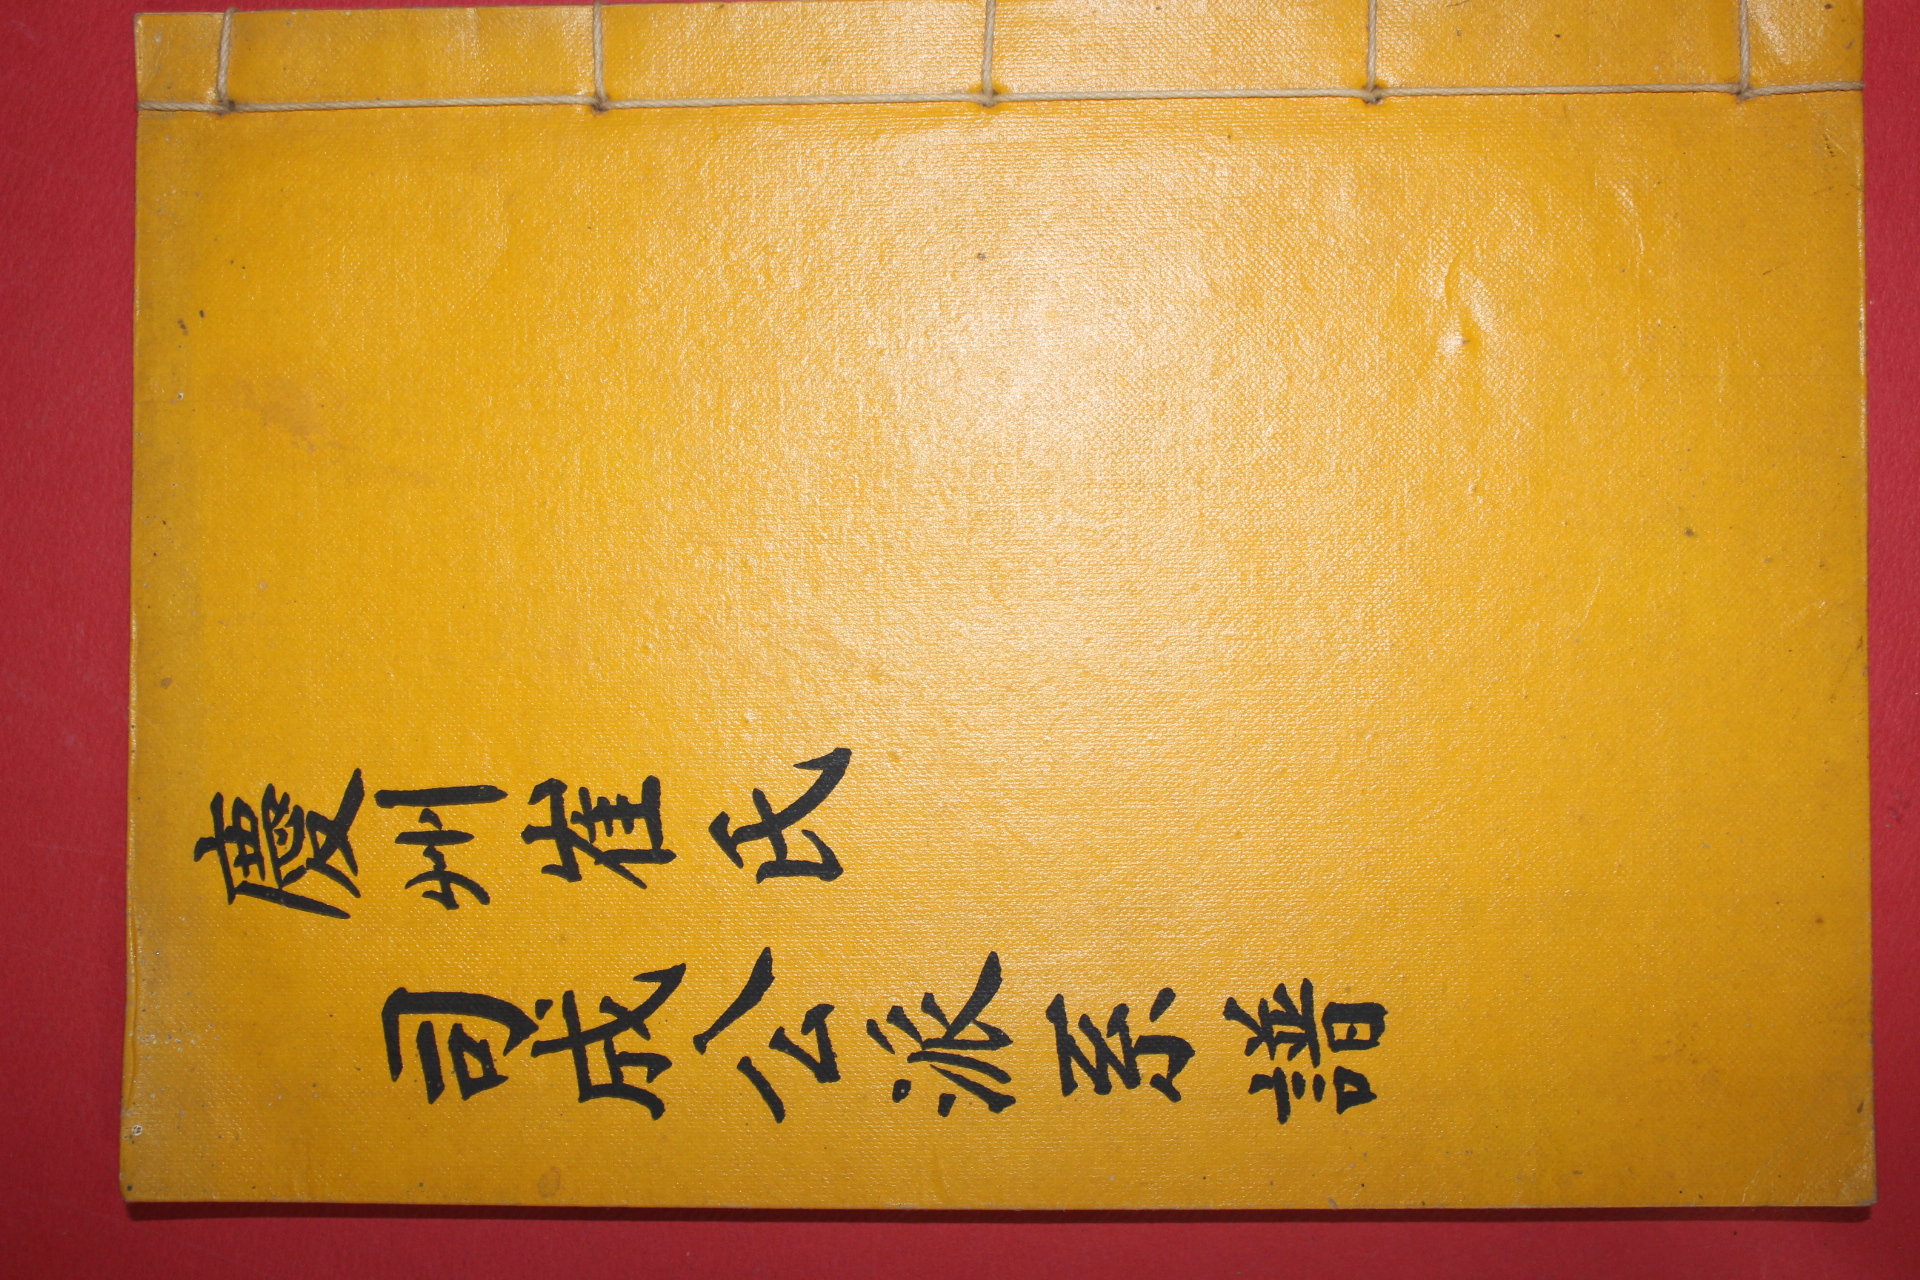 慶州崔氏
司成公派系譜